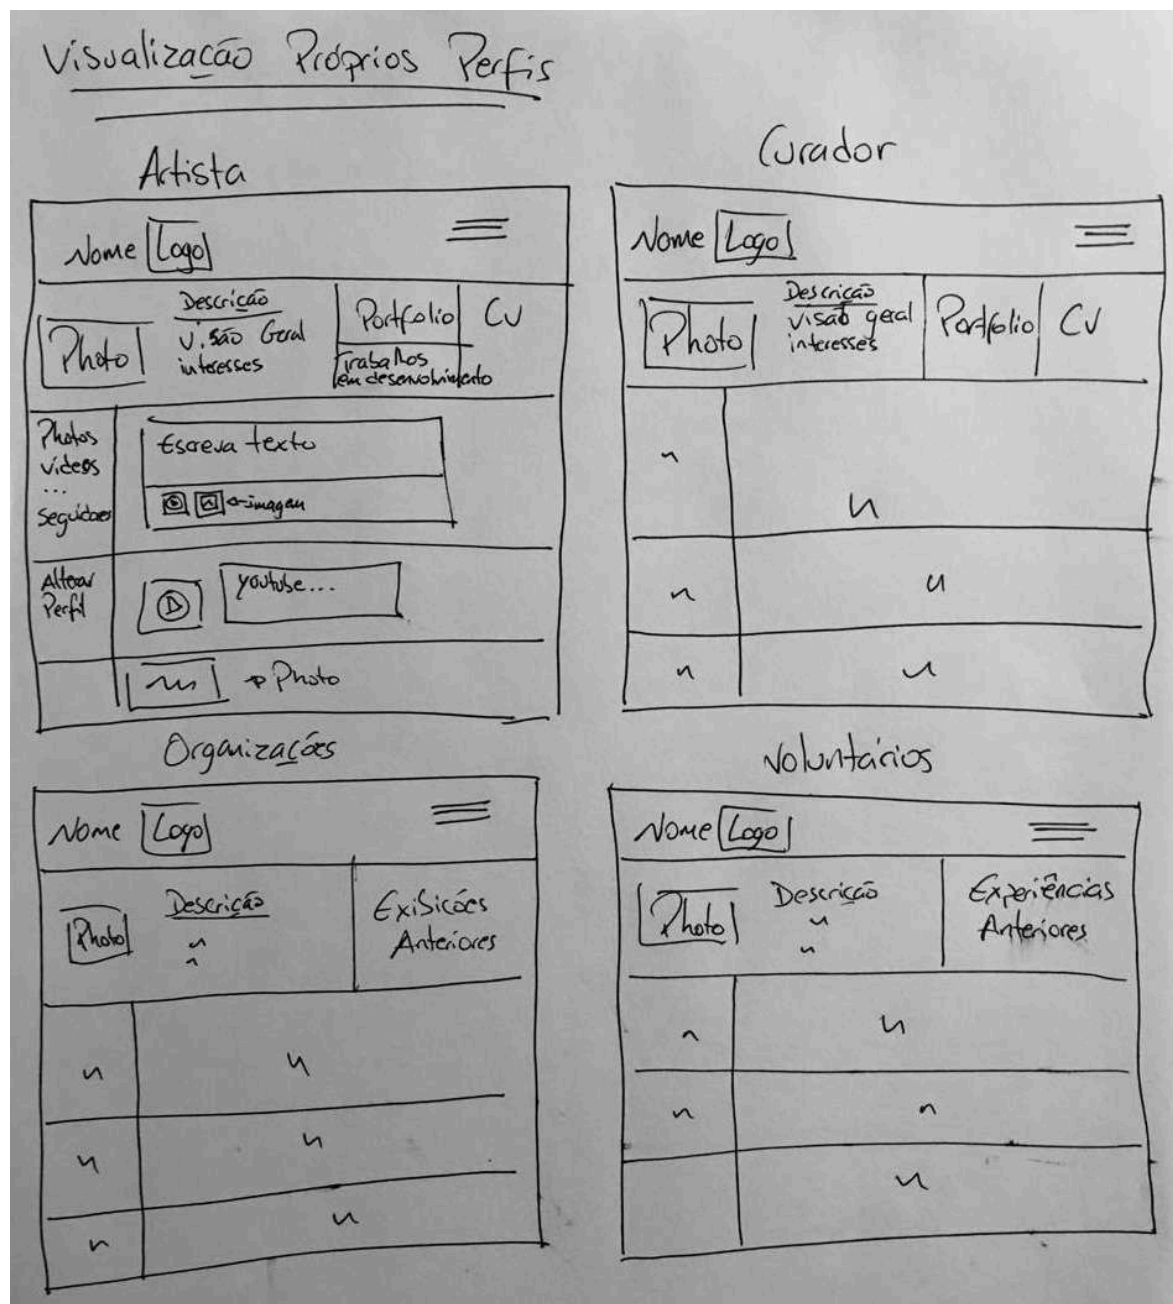 Visualização Próprios Perfis
Artista
Nome Logo
Photo
Descrição
Visão Geral
interesses
Portfolio
CV
Trabalhos
em desenvolvimento
Photos
vídeos
...
seguidores
Escreva texto
imagem
Alterar
Perfil
youtube...
Photo
Curador
Nome Logo
Photo
Descrição
visão geral
interesses
Portfolio
CV
Organizações
Nome Logo
Photo
Descrição
Exibições
Anteriores
Voluntários
Nome Logo
Photo
Descrição
Experiências
Anteriores